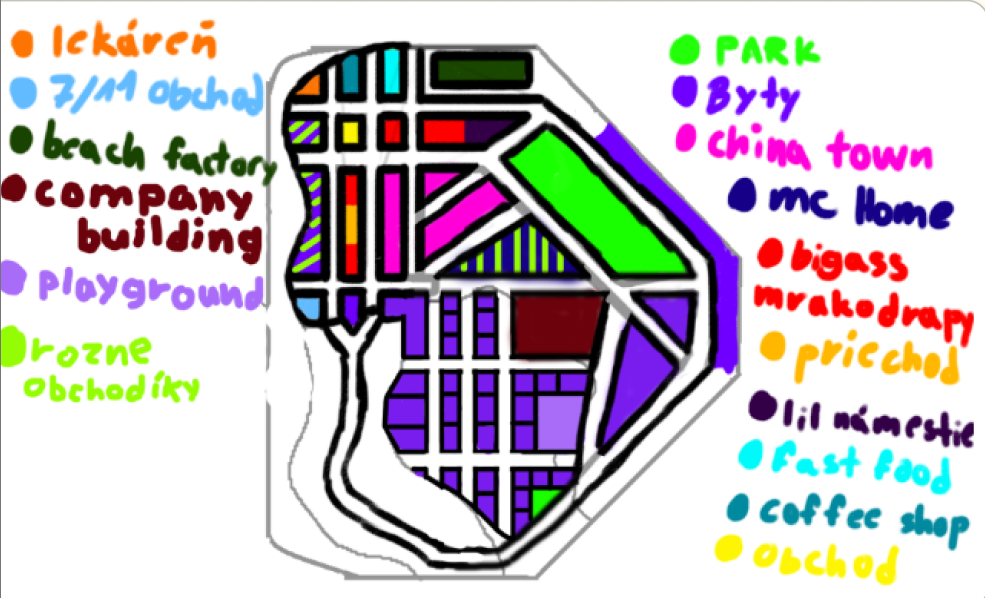 lekáreň
7/11 obchod
beach factory
company
building
playground
rozne
obchodíky
PARK
Byty
china town
mc Home
bigass
mrakodrapy
priechod
lil námestie
fast food
coffee shop
obchod